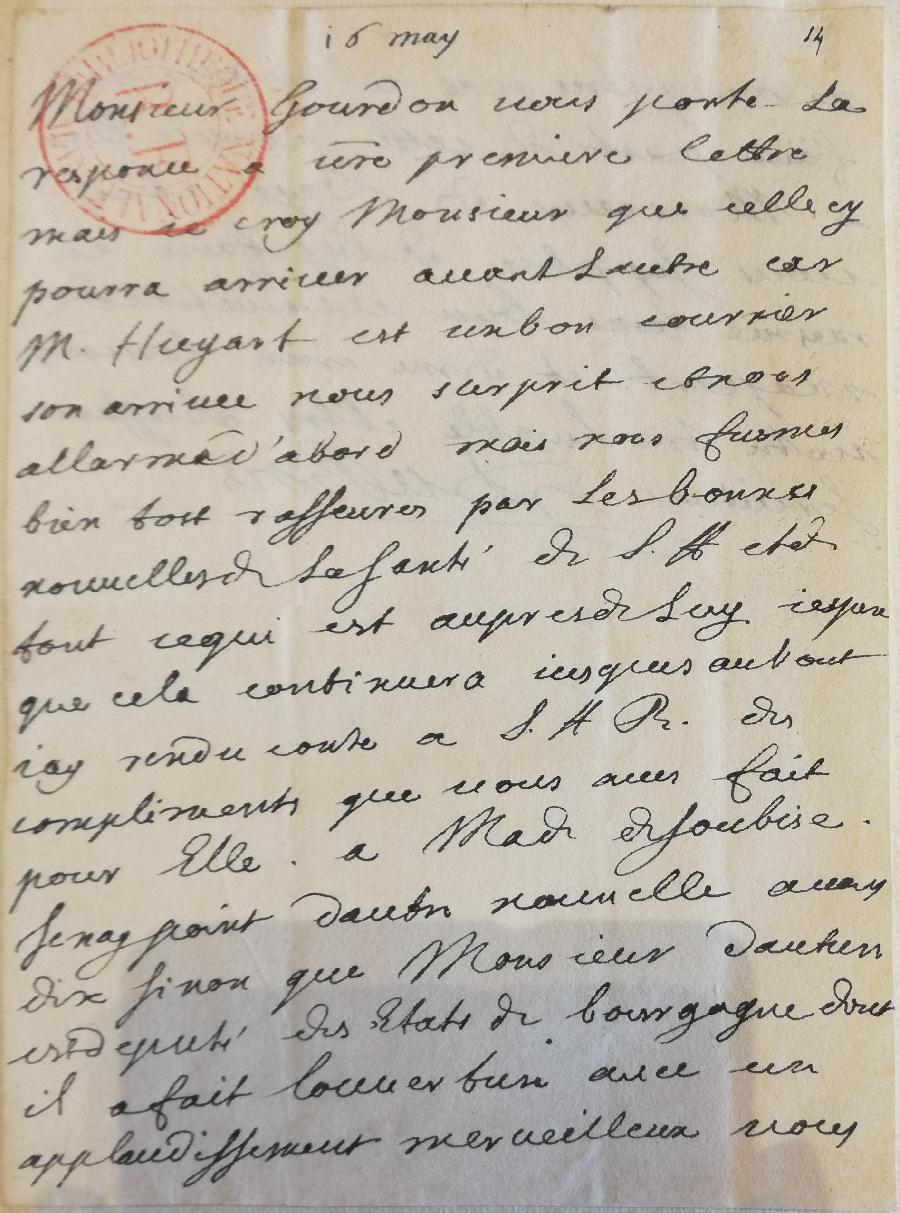 16 may
14
BIBLIOTHEQUE NATIONALE
Monsieur Gourdon vous porte La
responce a vr̄e premiere lettre
mais ie croy Monsieur que celle cy
pourra arriuer auant Lautre car
M. Huyart est unbon courrier
son arriuee nous surprit etnous
allarma d'abord mais nous fusmes
bien tost rasseures par Lesbonnes
nouuellesde La santé de S. A et de
tout cequi est aupresde Luy iespere
que cela continuera iusques aubout
iay rendu conte a S. A R. des
compliments que vous aues fait
pour Elle . a Made desoubise .
Je nay point dautre nouuelle a
dire sinon que Monsieur
estdeputé des Etats de bourgogne dont
il a fait auec un
applaudissement merueilleux vous